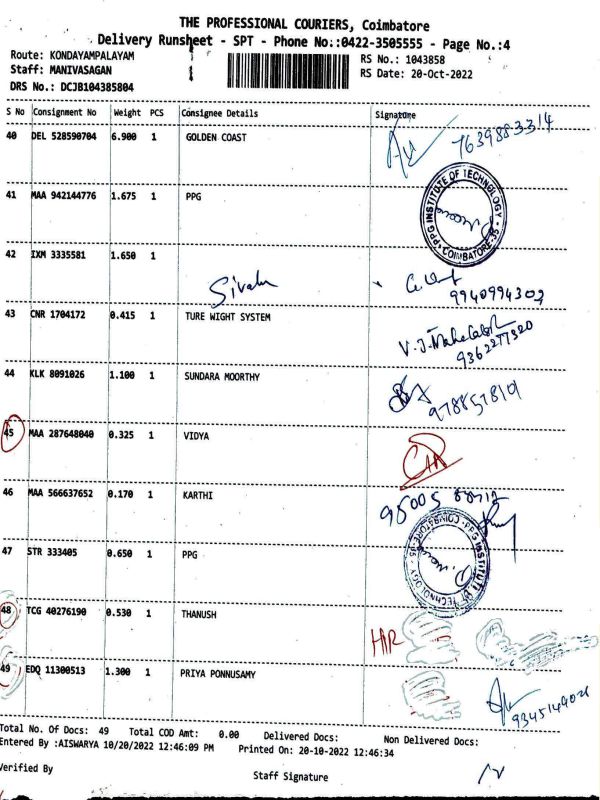 THE PROFESSIONAL COURIERS, Coimbatore
Delivery Runsheet - SPT - Phone No::0422-3505555 - Page No.:4
Route: KONDAYAMPALAYAM RS No.: 1043858
Staff: MANIVASAGAN RS Date: 20-Oct-2022
DRS No.: DCJB104385804
S No Consignment No Weight PCS Consignee Details Signature
40 DEL 528590704 6.900 1 GOLDEN COAST 7639883314
41 MAA 942144776 1.675 1 PPG
PPG INSTITUTE OF TECHNOLOGY COIMBATORE-35
42 IXM 3335581 1.650 1
9940994303
43 CNR 1704172 0.415 1 TURE WIGHT SYSTEM
9362277320
44 KLK 8091026 1.100 1 SUNDARA MOORTHY
45 MAA 287648040 0.325 1 VIDYA
46 MAA 566637652 0.170 1 KARTHI
47 STR 333405 0.650 1 PPG
PPG INSTITUTE OF TECHNOLOGY COIMBATORE-35
48 TCG 40276190 0.530 1 THANUSH
49 EDQ 11300513 1.300 1 PRIYA PONNUSAMY
Total No. Of Docs: 49 Total COD Amt: 0.00 Delivered Docs: Non Delivered Docs:
Entered By :AISWARYA 10/20/2022 12:46:09 PM Printed On: 20-10-2022 12:46:34
Verified By Staff Signature